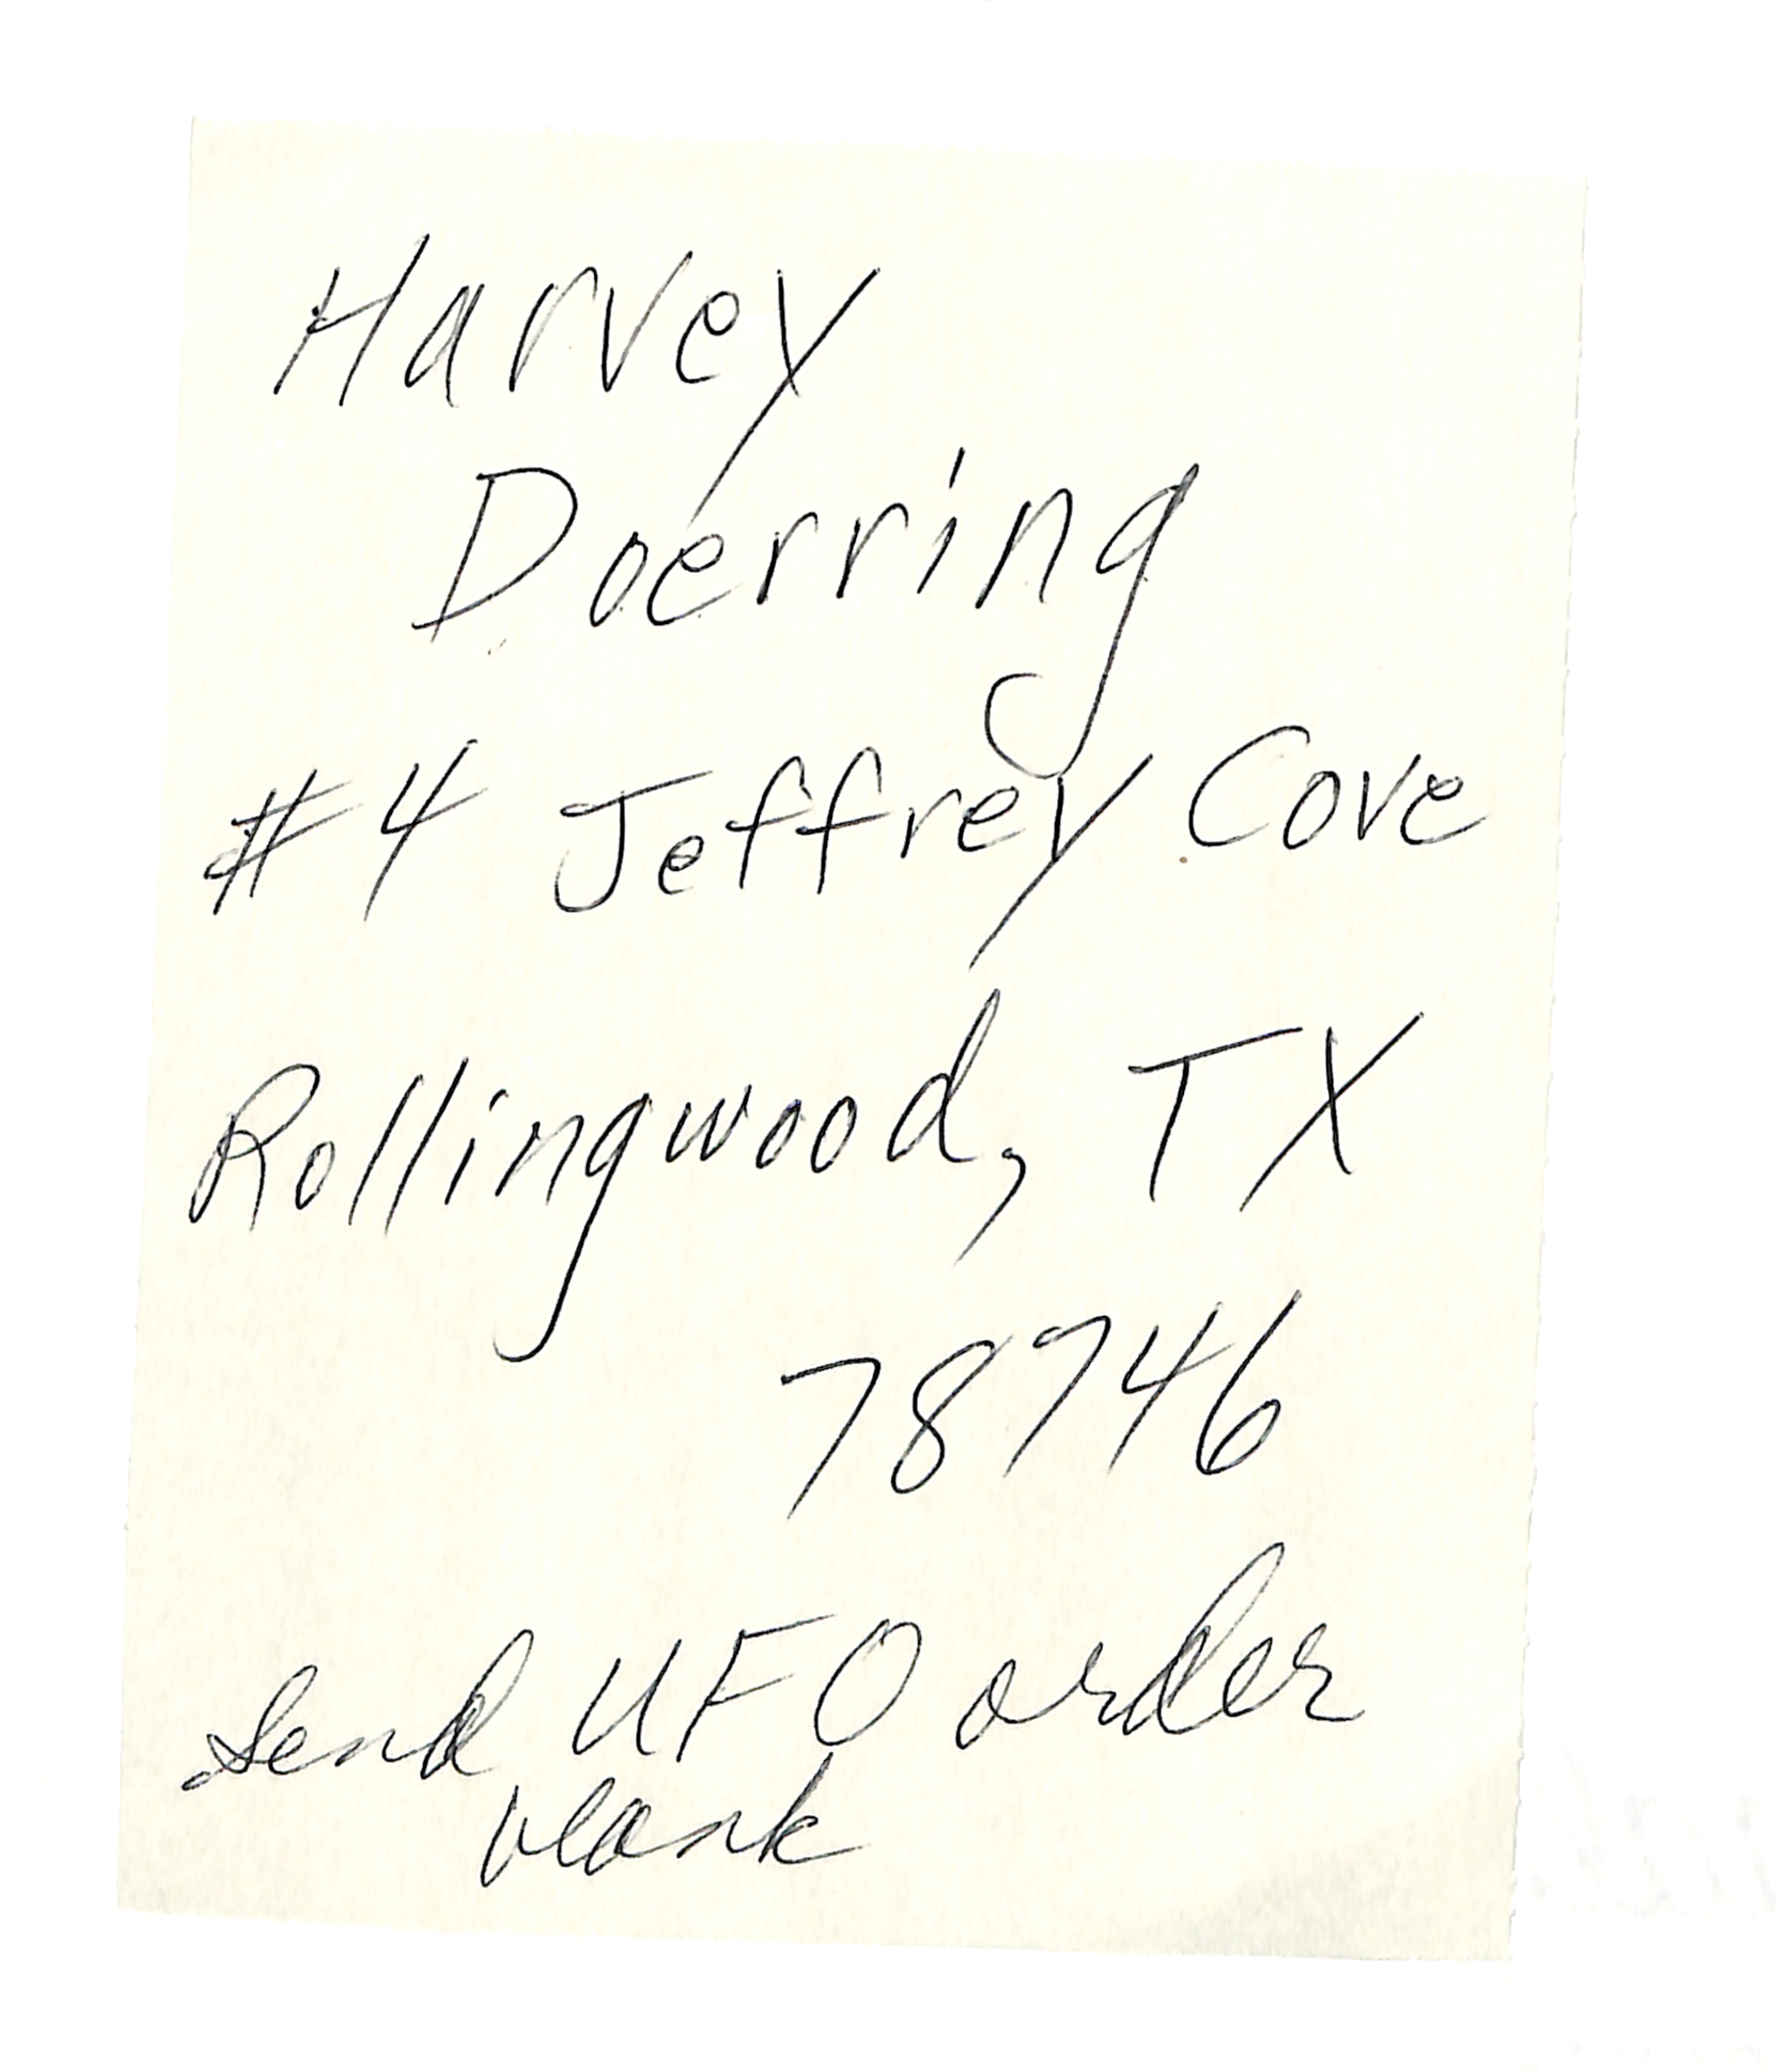 Harvey
Doerring
#4 Jeffrey Cove
Rollingwood, TX
78746
Send UFO order
blank